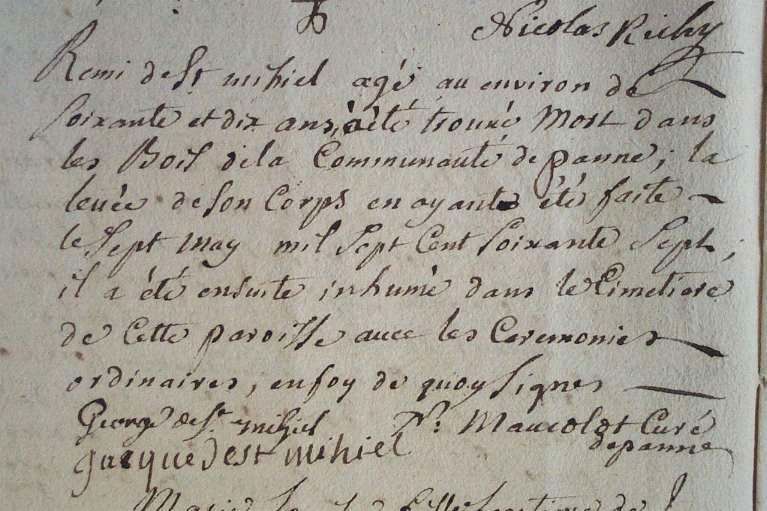 Nicolas Richy
Remi de St mihiel agé au environ de
Soixante et dix ans, a été trouvé Mort dans
les Bois de la Communauté de panne; la
levée de son Corps en ayant été faite
le Sept may mil Sept Cent Soixante Sept;
il a été ensuite inhumé dans le Cimetiere
de Cette paroisse avec les Ceremonies
ordinaires, en foy de quoy Signes
George de St mihiel N. Maucolot Curé
de panne
jacque de st mihiel